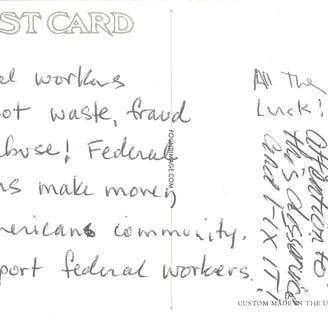 ST CARD
al workers
ot waste, fraud
buse! Federal
ns make money
mericans community.
port federal workers.
All The
Luck!
attention to
this disservice
and FIX IT!
FOUNDIMAGE.COM
CUSTOM MADE IN THE U